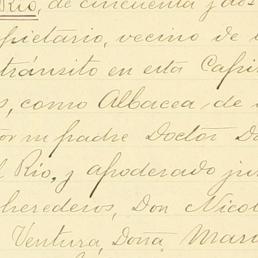 Rio, de cincuenta y dos
pietario, vecino de
tránsito en esta Capi
s, como Albacea de
or mi padre Doctor Do
l Rio, y apoderado ju
herederos, Don Nico
Ventura, Doña Mar